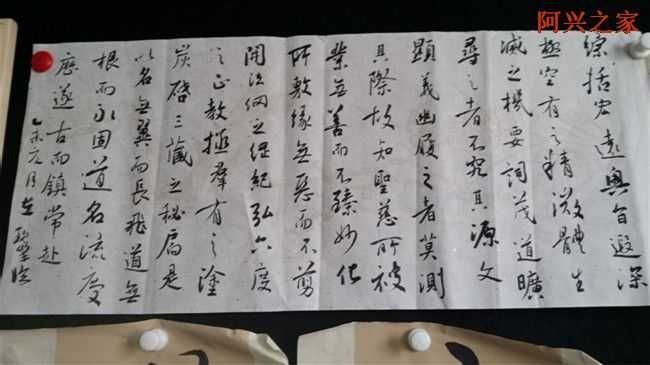 阿兴之家
綜括宏遠奧旨遐深
極空有之精微體生
滅之機要詞茂道曠
尋之者不究其源文
顯義幽履之者莫測
其際故知聖慈所被
業無善而不臻妙化
所敷緣無惡而不剪
開法網之綱紀弘六度
之正教拯羣有之塗
炭啓三藏之秘扃是
以名無翼而長飛道無
根而永固道名流慶
歷遂古而鎮常赴